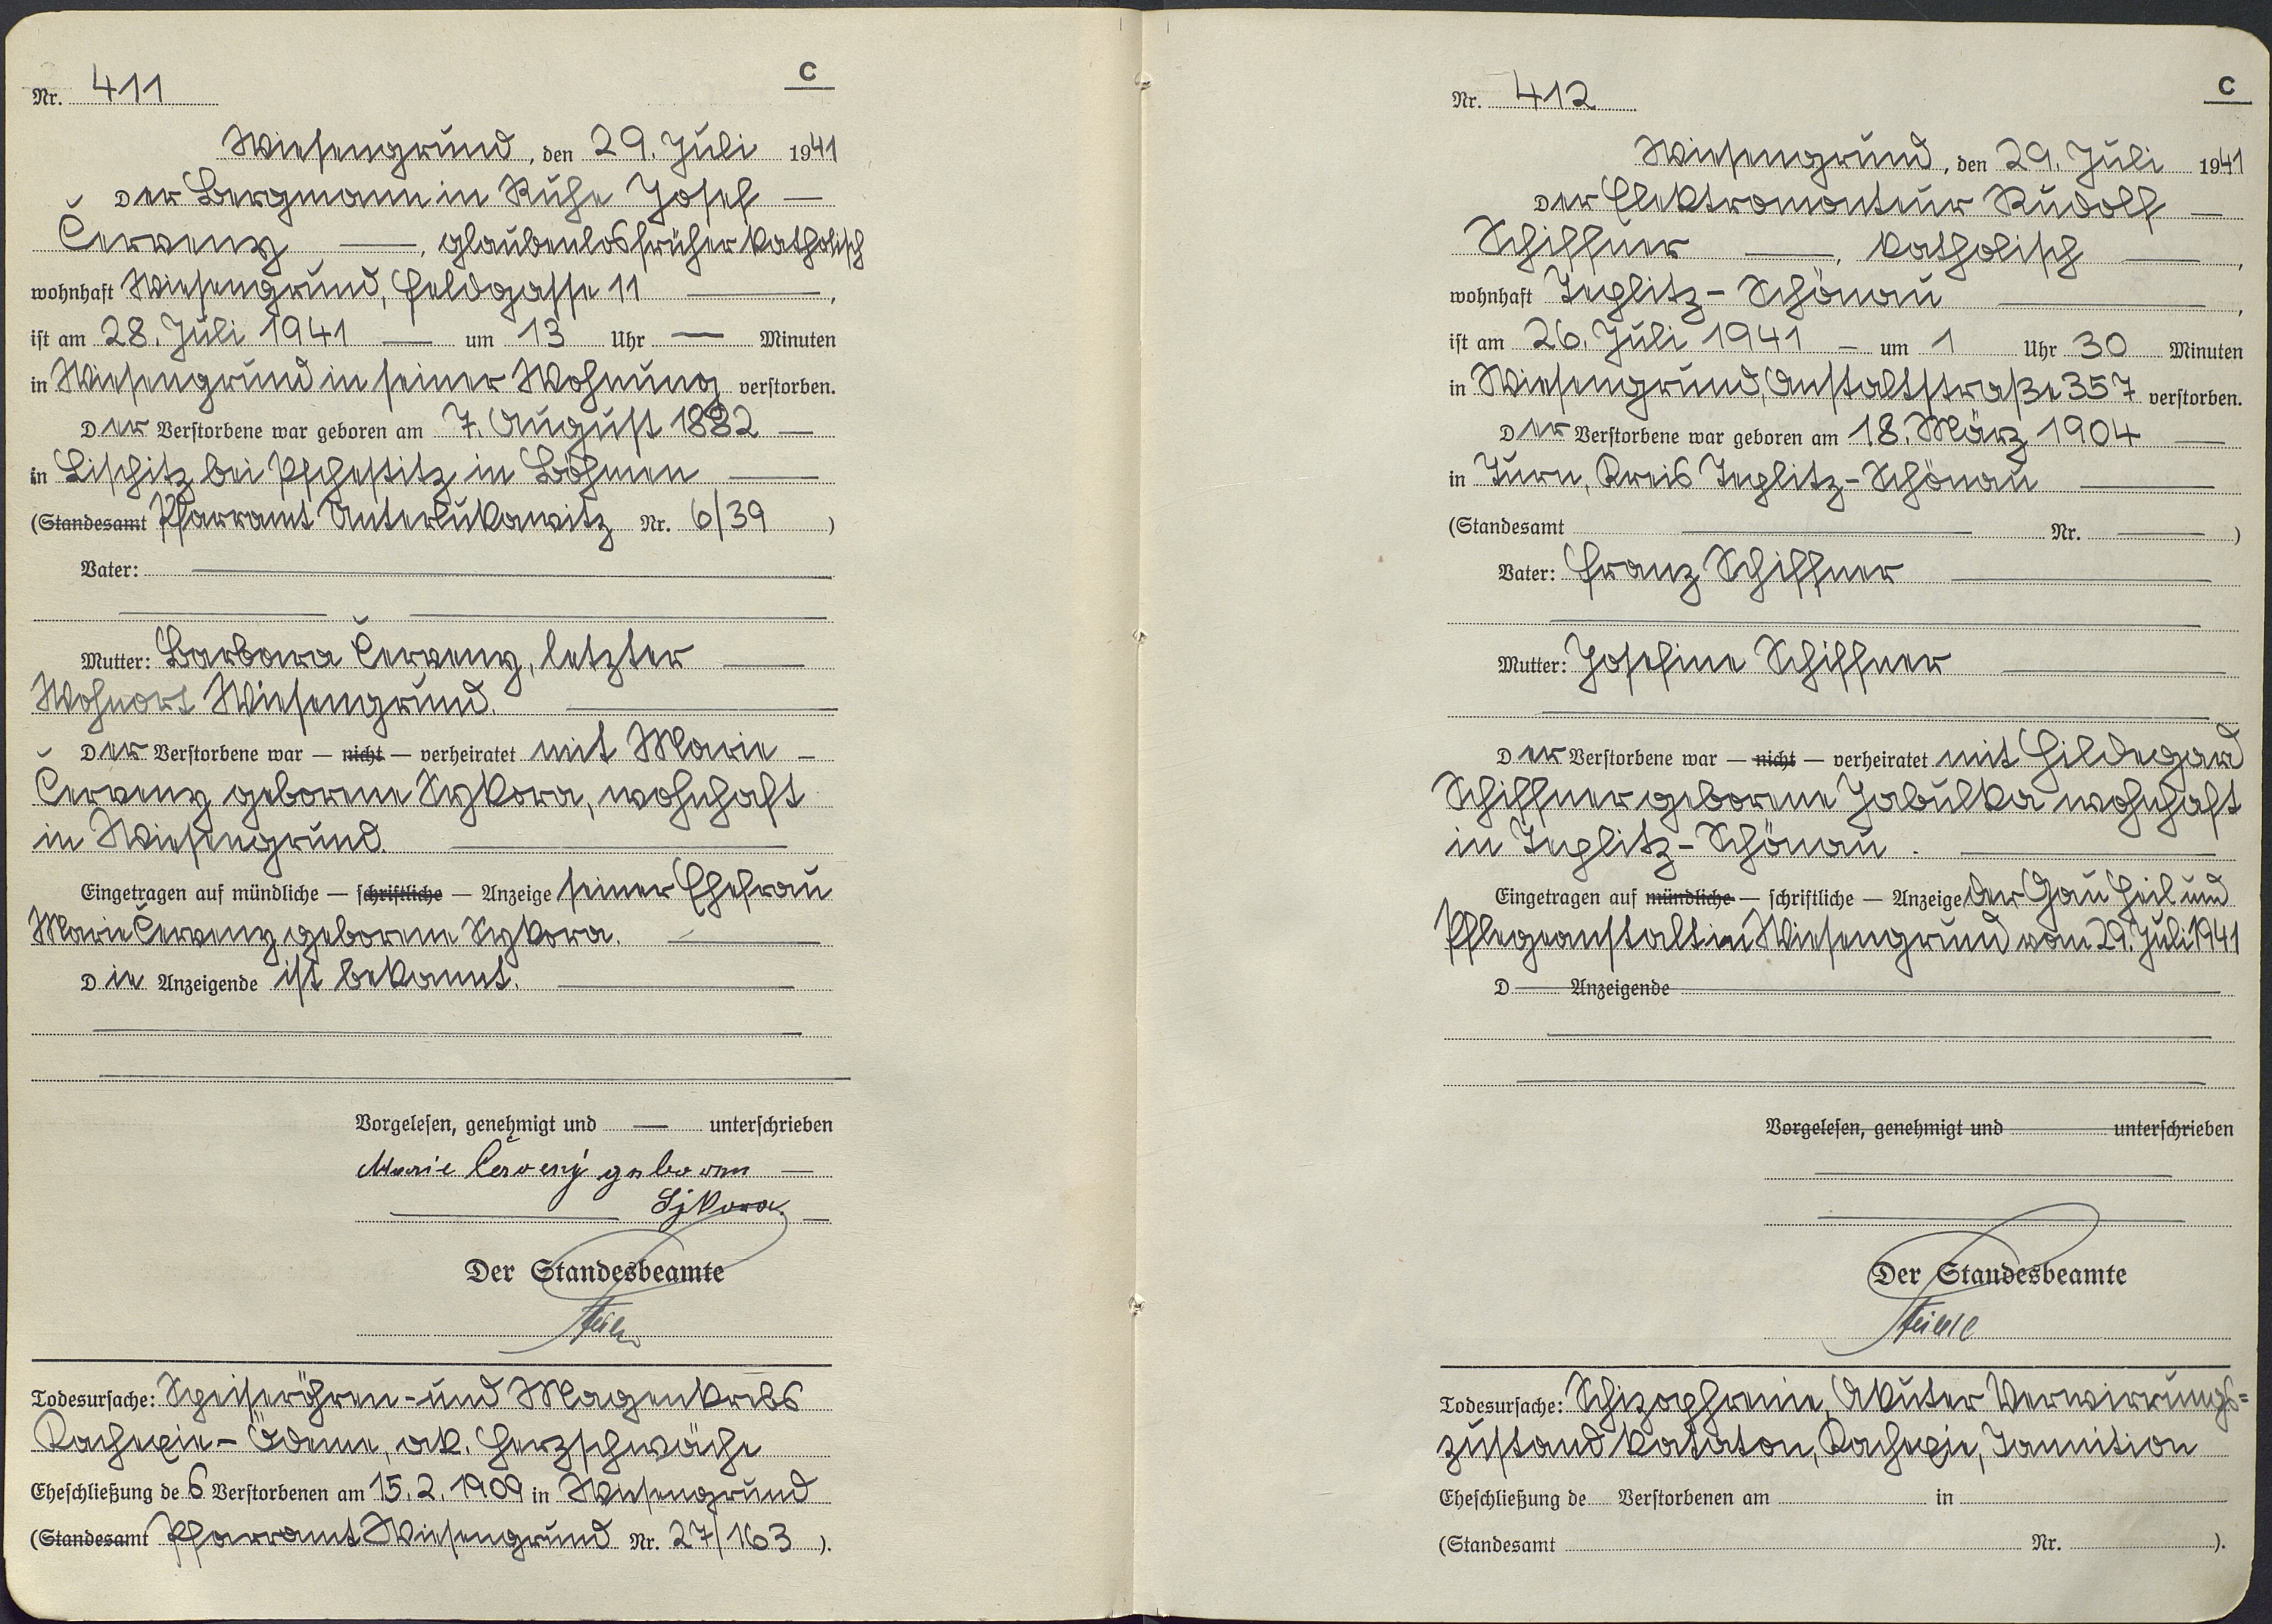 C
Nr. 411
Wiesengrund, den 29. Juli 1941
Der Bergmann in Ruhe Josef —
Červeny —, glaubenlos früher katholisch
wohnhaft Wiesengrund, Feldgasse 11 —,
ist am 28. Juli 1941 — um 13 Uhr — Minuten
in Wiesengrund in seiner Wohnung verstorben.
Der Verstorbene war geboren am 7. August 1882 —
in Lischitz bei Pschestitz in Böhmen —
(Standesamt Pfarramt Unterlukawitz Nr. 6/39 )
Vater: —
Mutter: Barbara Červeny, letzter —
Wohnort Wiesengrund. —
Der Verstorbene war — nicht — verheiratet mit Marie —
Červeny geborene Sykora, wohnhaft
in Wiesengrund. —
Eingetragen auf mündliche — schriftliche — Anzeige seiner Ehefrau
Marie Červeny geborene Sykora. —
Die Anzeigende ist bekannt. —
Vorgelesen, genehmigt und — unterschrieben
Marie Červený geboren —
— Sykora. —
Der Standesbeamte
Todesursache: Speiseröhren- und Magenkrebs
Kachexie - Ödeme, ak. Herzschwäche
Eheschließung des Verstorbenen am 15.2.1909 in Wiesengrund
(Standesamt Pfarramt Wiesengrund Nr. 27/163 ).
C
Nr. 412
Wiesengrund, den 29. Juli 1941
Der Elektromonteur Rudolf —
Schiffner —, katholisch —,
wohnhaft Teplitz-Schönau —,
ist am 26. Juli 1941 — um 1 Uhr 30 Minuten
in Wiesengrund, Anstaltstraße 357 verstorben.
Der Verstorbene war geboren am 18. März 1904 —
in Turn, Kreis Teplitz-Schönau —
(Standesamt — Nr. — )
Vater: Franz Schiffner —
Mutter: Josefine Schiffner —
Der Verstorbene war — nicht — verheiratet mit Hildegard
Schiffner geborene Jabulka wohnhaft
in Teplitz-Schönau. —
Eingetragen auf mündliche — schriftliche — Anzeige der Gau Heil und
Pflegeanstalt in Wiesengrund vom 29. Juli 1941
D — Anzeigende —
Vorgelesen, genehmigt und unterschrieben
Der Standesbeamte
Todesursache: Schizophrenie, Akuter Verwirrungs=
zustand kataton, Kachexie, Jannition
Eheschließung de Verstorbenen am in
(Standesamt Nr. ).